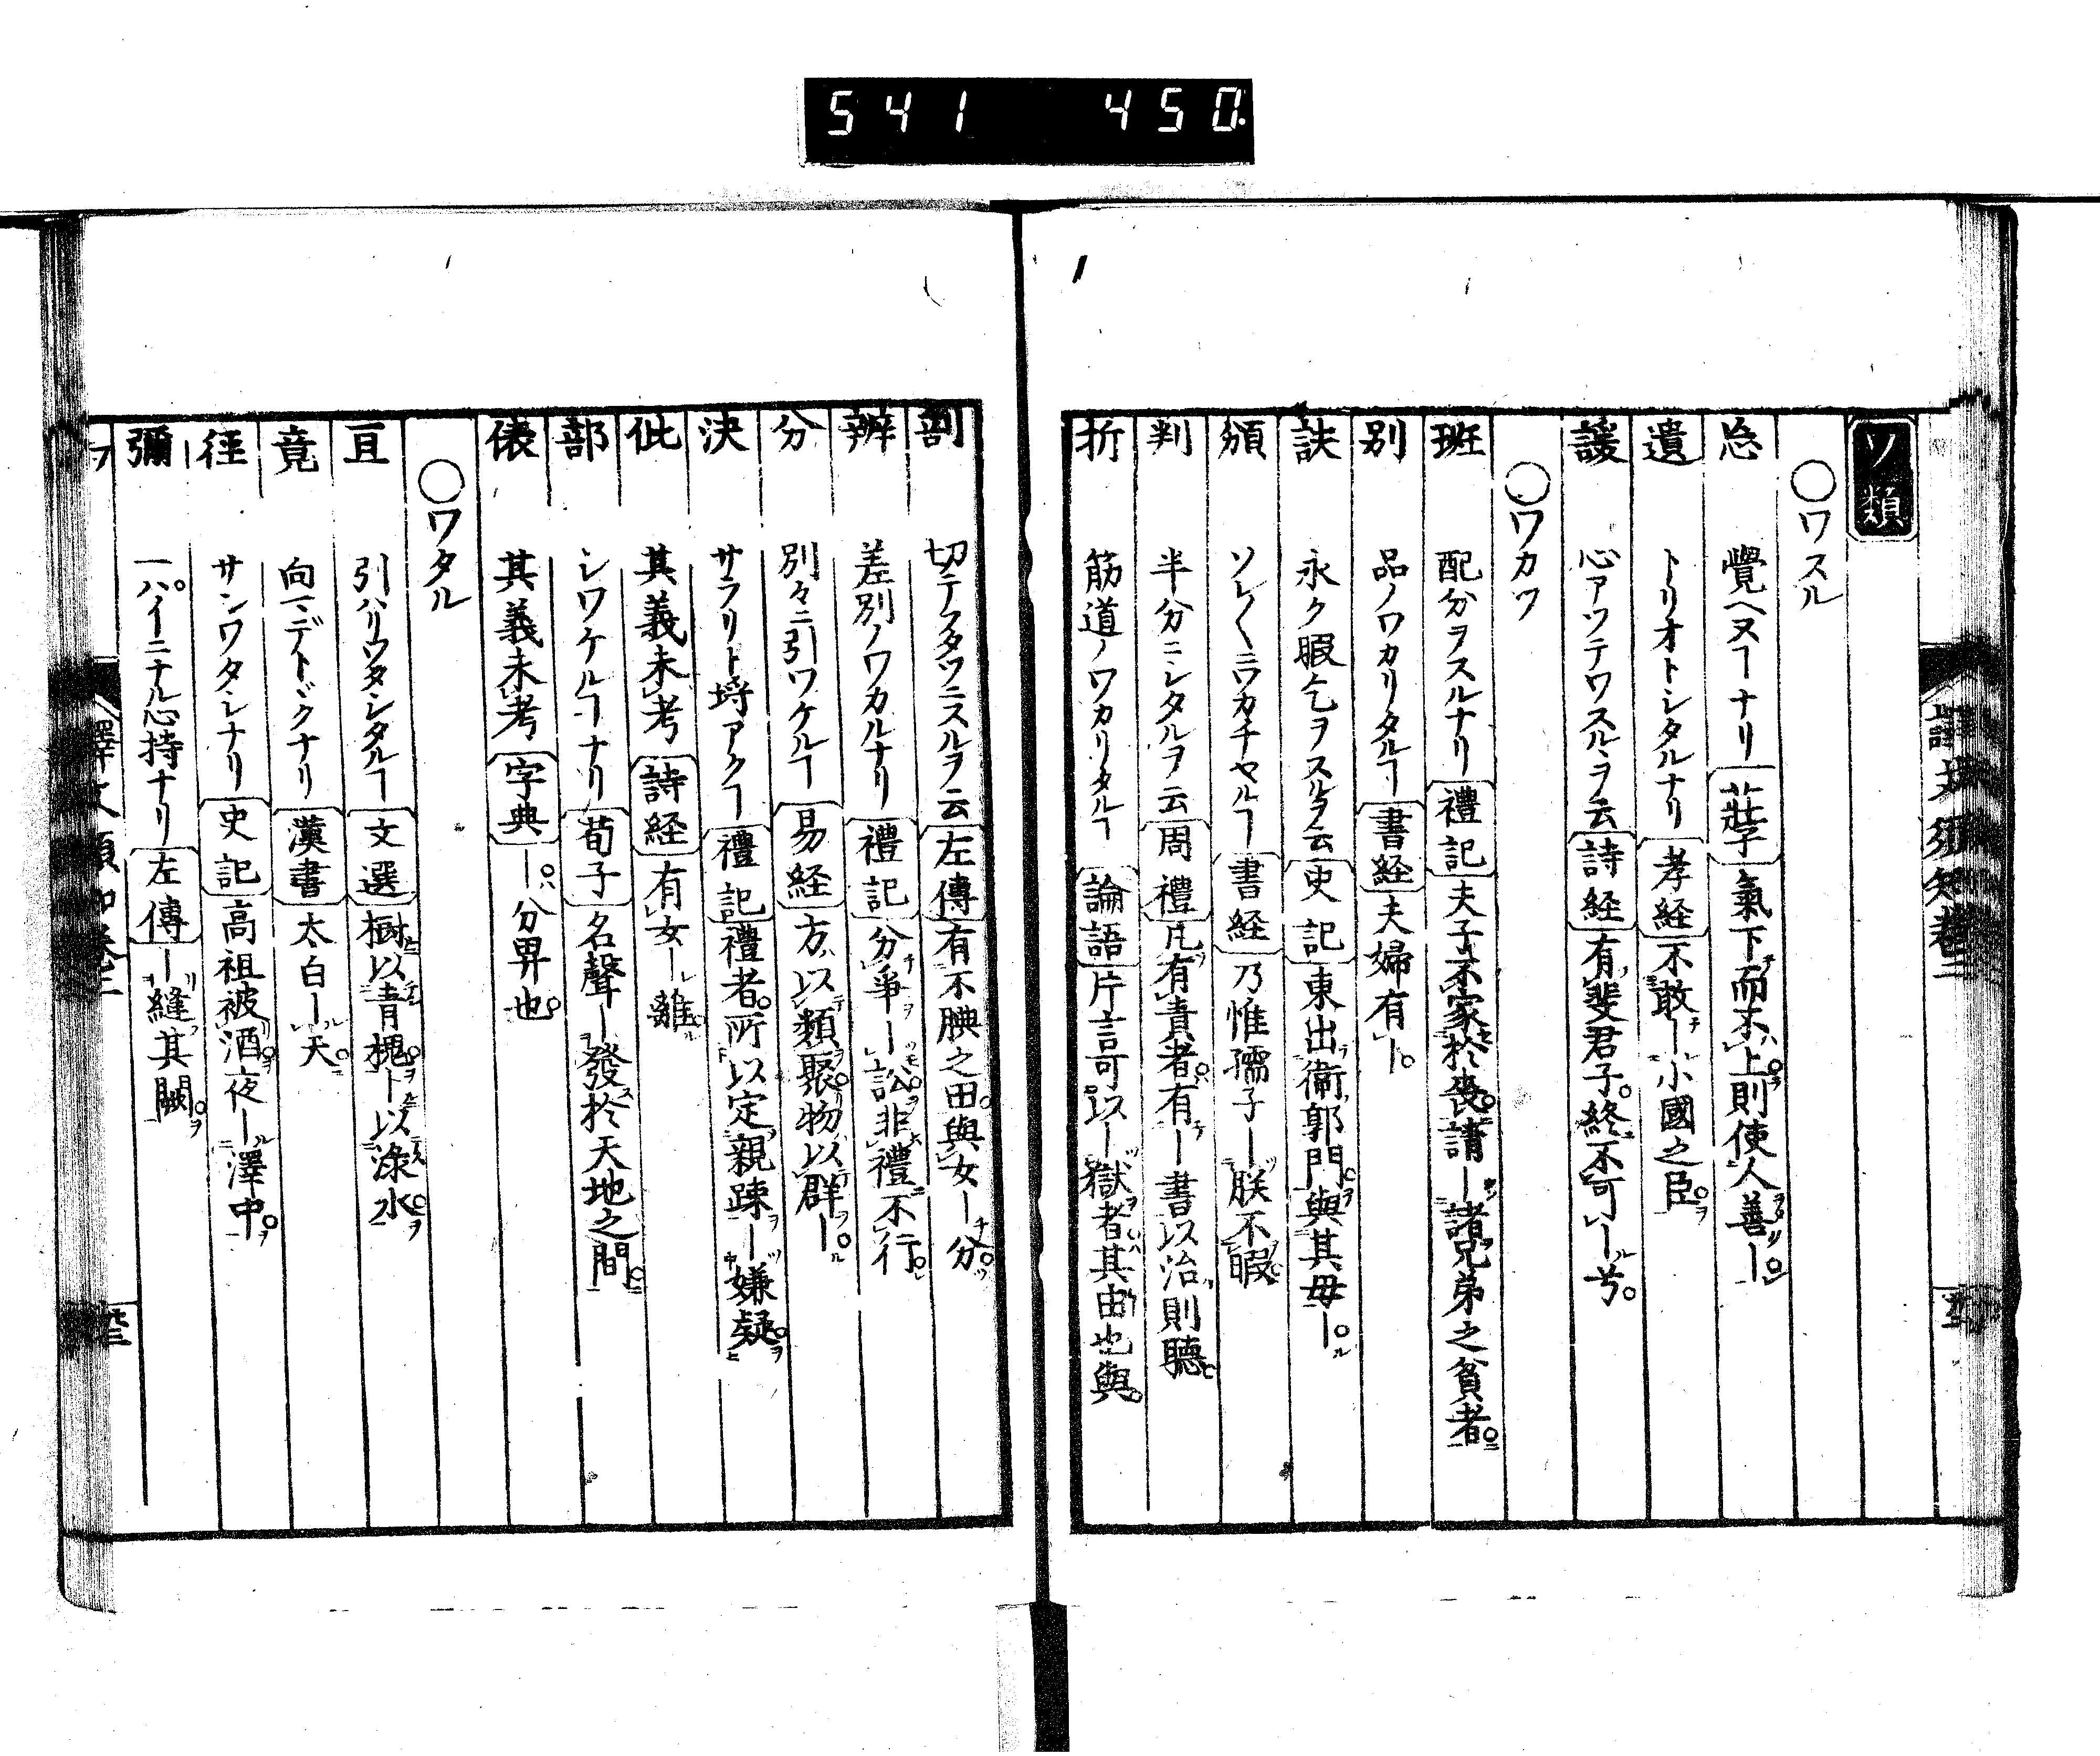 541 450
譯文須知卷三
ワ類
○ワスル
忘 覺ヘヌヿナリ 莊子 氣下而不上則使人善ー
遺 トリオトシタルナリ 孝経 不敢ー小國之臣
諼 心アツテワスルヽヲ云 詩経 有斐君子終不可ー兮
○ワカツ
班 配分ヲスルナリ 禮記 夫子不家於喪請ー諸兄弟之貧者
別 品ノワカリタルヿ 書経 夫婦有ー
訣 永ク暇乞ヲスルヲ云 史記 東出衞郭門與其毋ー
頒 ソレ〱ニワカチヤルヿ 書経 乃惟孺子ー朕不暇
判 半分ニシタルヲ云 周禮 凡有責者有ー書以治則聽
折 筋道ノワカリタルヿ 論語 片言可以ー獄者其由也與
割 切テフタツニスルヲ云 左傳 有不腆之田與女ー分
辨 差別ノワカルナリ 禮記 分爭ー訟非禮不行
分 別々ニ引ワケルヿ 易経 方以類聚物以群ー
決 サラリト埒アクヿ 禮記 禮者所以定親踈ー嫌疑
仳 其義未考 詩経 有女ー離
部 シワケルヿナリ 荀子 名聲ー發於天地之間
俵 其義未考 字典 ー分畀也
○ワタル
亘 引ハリワタシタルヿ 文選 樹以青槐ー以淥水
竟 向フマデトヾクナリ 漢書 太白ー天
徑 サシワタシナリ 史記 高祖被酒夜ー澤中
彌 一パイニナル心持ナリ 左傳 ー縫其闕